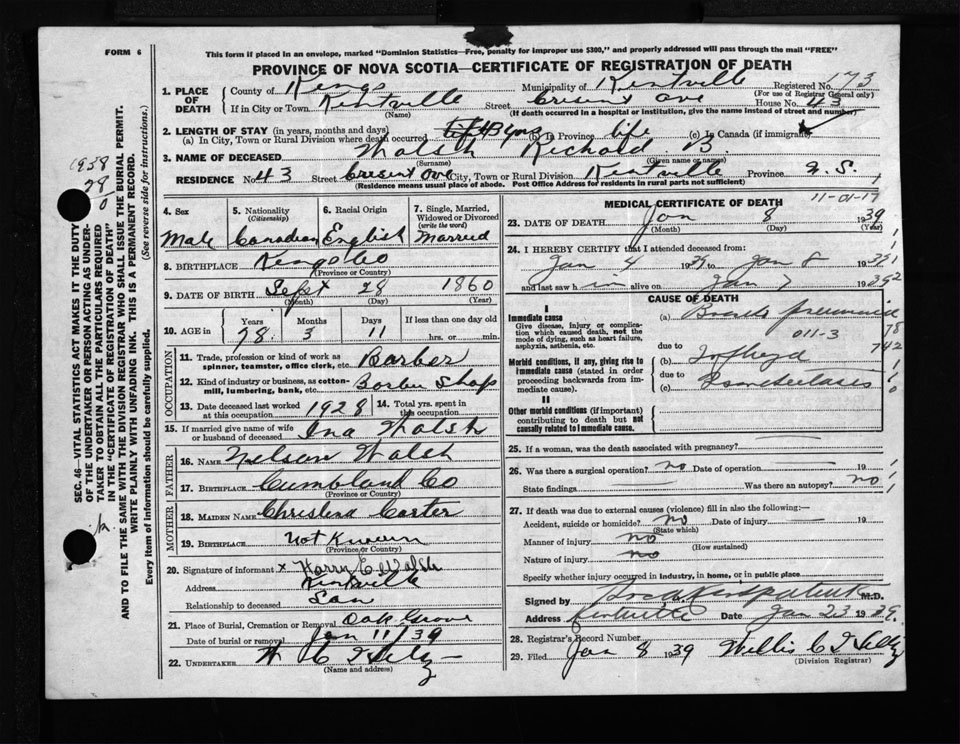 FORM 6
This form if placed in an envelope, marked "Dominion Statistics—Free, penalty for improper use $300," and properly addressed will pass through the mail "FREE"
PROVINCE OF NOVA SCOTIA—CERTIFICATE OF REGISTRATION OF DEATH
1. PLACE OF DEATH County of Kings Municipality of Kentville Registered No. 173
(For use of Registrar General only)
If in City or Town Kentville Street Cresent Ave House No. 43
(Name) (If death occurred in a hospital or institution, give the name instead of street and number)
2. LENGTH OF STAY (in years, months and days)
(a) In City, Town or Rural Division where death occurred yrs (b) In Province life (c) In Canada (if immigrant)
3. NAME OF DECEASED Walsh Richard B.
(Surname) (Given name or names)
RESIDENCE No. 43 Street Cresent Ave City, Town or Rural Division Kentville Province N.S.
(Residence means usual place of abode. Post Office Address for residents in rural parts not sufficient)
4. Sex Male
5. Nationality (Citizenship) Canadian
6. Racial Origin English
7. Single, Married, Widowed or Divorced (write the word) Married
8. BIRTHPLACE Kings Co
(Province or Country)
9. DATE OF BIRTH Sept 28 1860
(Month) (Day) (Year)
10. AGE in Years Months Days If less than one day old
78 3 11 hrs. or min.
OCCUPATION
11. Trade, profession or kind of work as spinner, teamster, office clerk, etc. Barber
12. Kind of industry or business, as cotton-mill, lumbering, bank, etc. Barber Shop
13. Date deceased last worked at this occupation 1928
14. Total yrs. spent in this occupation
15. If married give name of wife or husband of deceased Ina Walsh
FATHER
16. NAME Nelson Walsh
17. BIRTHPLACE Cumbland Co
(Province or Country)
MOTHER
18. MAIDEN NAME Christena Carter
19. BIRTHPLACE Not Known
(Province or Country)
20. Signature of informant x Harry E. Walsh
Address Kentville
Relationship to deceased Son
21. Place of Burial, Cremation or Removal Oak Grove
Date of burial or removal Jan 11/39
22. UNDERTAKER W C T Hiltz
(Name and address)
MEDICAL CERTIFICATE OF DEATH
11-01-17
23. DATE OF DEATH Jan 8 1939
(Month) (Day) (Year)
24. I HEREBY CERTIFY that I attended deceased from:
Jan 4 1939 to Jan 8 1939
and last saw him alive on Jan 7 1939
CAUSE OF DEATH
I
Immediate cause
Give disease, injury or complication which caused death, not the mode of dying, such as heart failure, asphyxia, asthenia, etc.
(a) Broncho pneumonia
011-3
due to
Morbid conditions, if any, giving rise to immediate cause (stated in order proceeding backwards from immediate cause).
(b)
due to
(c)
II
Other morbid conditions (if important) contributing to death but not causally related to immediate cause.
25. If a woman, was the death associated with pregnancy?
26. Was there a surgical operation? no Date of operation 19
State findings Was there an autopsy? no
27. If death was due to external causes (violence) fill in also the following:—
Accident, suicide or homicide? no Date of injury 19
(State which)
Manner of injury no
(How sustained)
Nature of injury no
Specify whether injury occurred in industry, in home, or in public place
Signed by M.D.
Address Kentville Date Jan 23 1939.
28. Registrar's Record Number
29. Filed Jan 8 1939 Willis C T Hiltz
(Division Registrar)
SEC. 46—VITAL STATISTICS ACT MAKES IT THE DUTY
OF THE UNDERTAKER OR PERSON ACTING AS UNDER-
TAKER TO OBTAIN ALL THE PARTICULARS REQUIRED
IN THE "CERTIFICATE OF REGISTRATION OF DEATH"
AND TO FILE THE SAME WITH THE DIVISION REGISTRAR WHO SHALL ISSUE THE BURIAL PERMIT.
WRITE PLAINLY WITH UNFADING INK. THIS IS A PERMANENT RECORD.
Every item of information should be carefully supplied. (See reverse side for instructions.)
1938
28
0